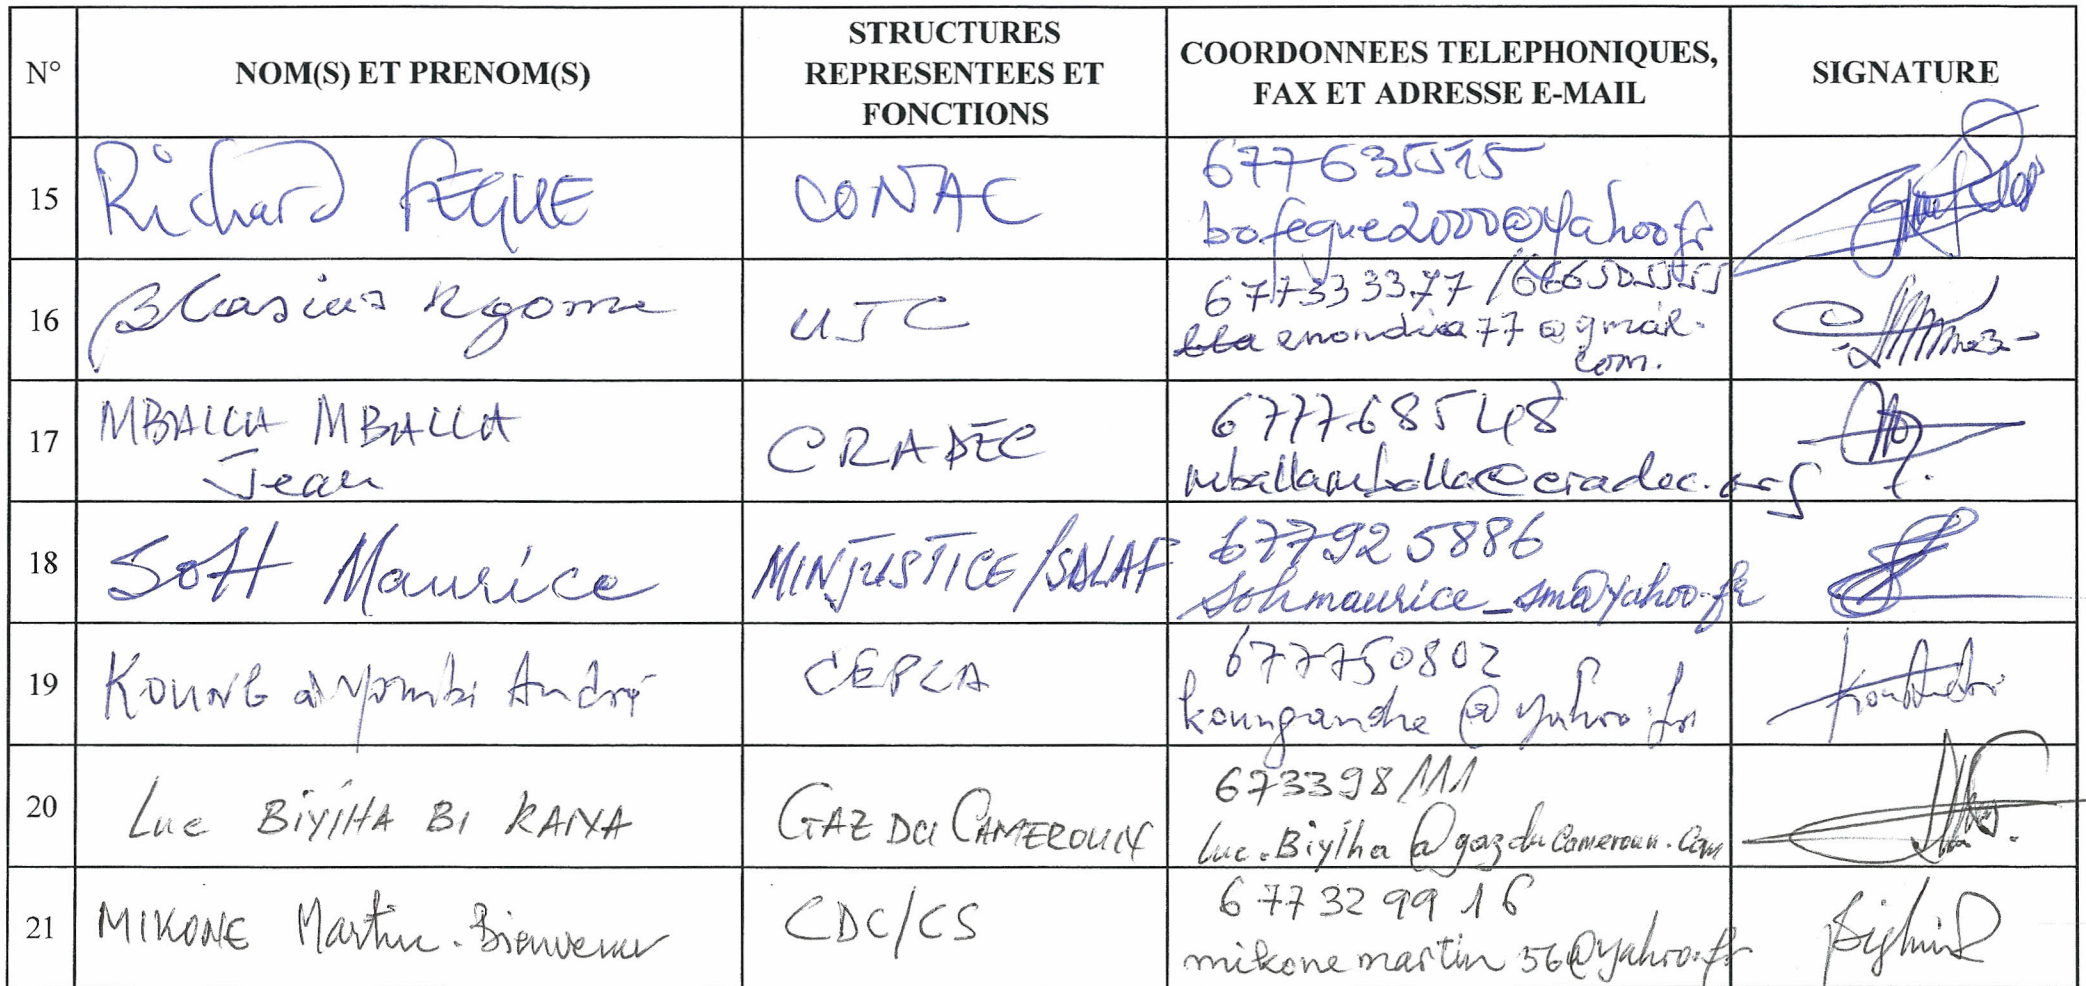 N° NOM(S) ET PRENOM(S) STRUCTURES REPRESENTEES ET FONCTIONS COORDONNEES TELEPHONIQUES, FAX ET ADRESSE E-MAIL SIGNATURE
15 Richard FEGUE CONAC 677635515
bofegue2000@yahoo.fr
16 Blasius Ngome UJC 677333377 /666505555
enondia77@gmail.
com.
17 MBALLA MBALLA CRADEC 677768548
Jean mballamballa@cradec.org
18 SOH Maurice MINJUSTICE/SDLAF 677925886
sohmaurice_sm@yahoo.fr
19 KOUNG à Yombi André CEPCA 677750802
koungandre@yahoo.fr
20 Luc BIYIHA BI KANA GAZ DU CAMEROUN 673398111
Luc.Biyiha@gazducameroun.com
21 MIKONE Martin-Bienvenu CDC/CS 677329916
mikonemartin56@yahoo.fr